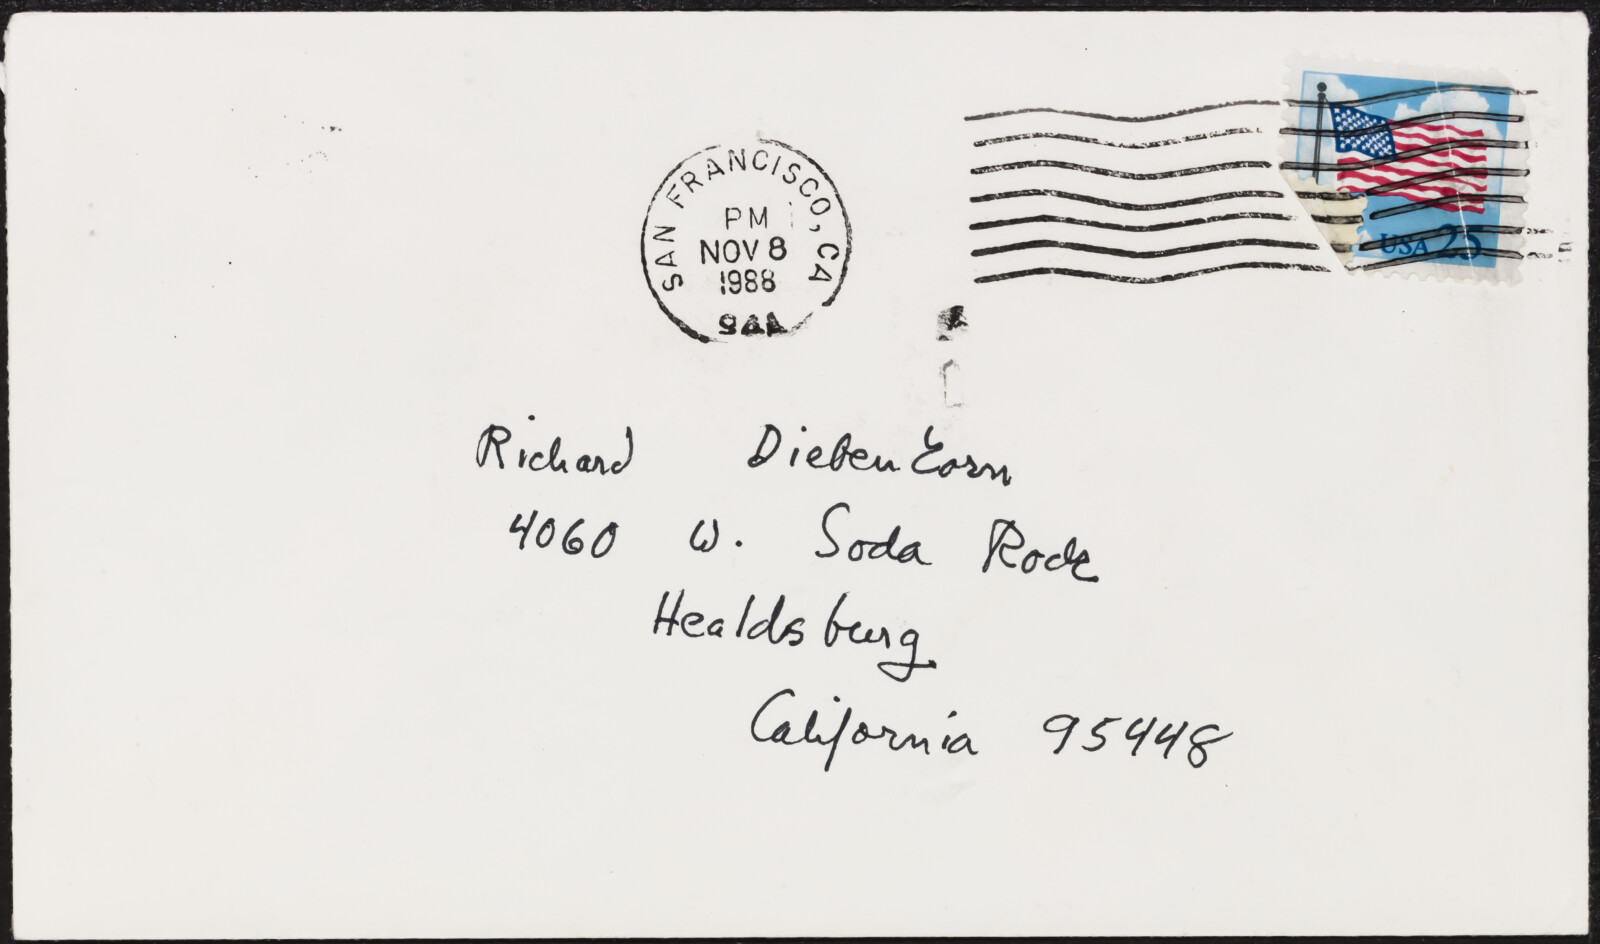 SAN FRANCISCO, CA
PM
NOV 8
1988
USA 25
Richard Diebenkorn
4060 W. Soda Rock
Healdsburg
California 95448